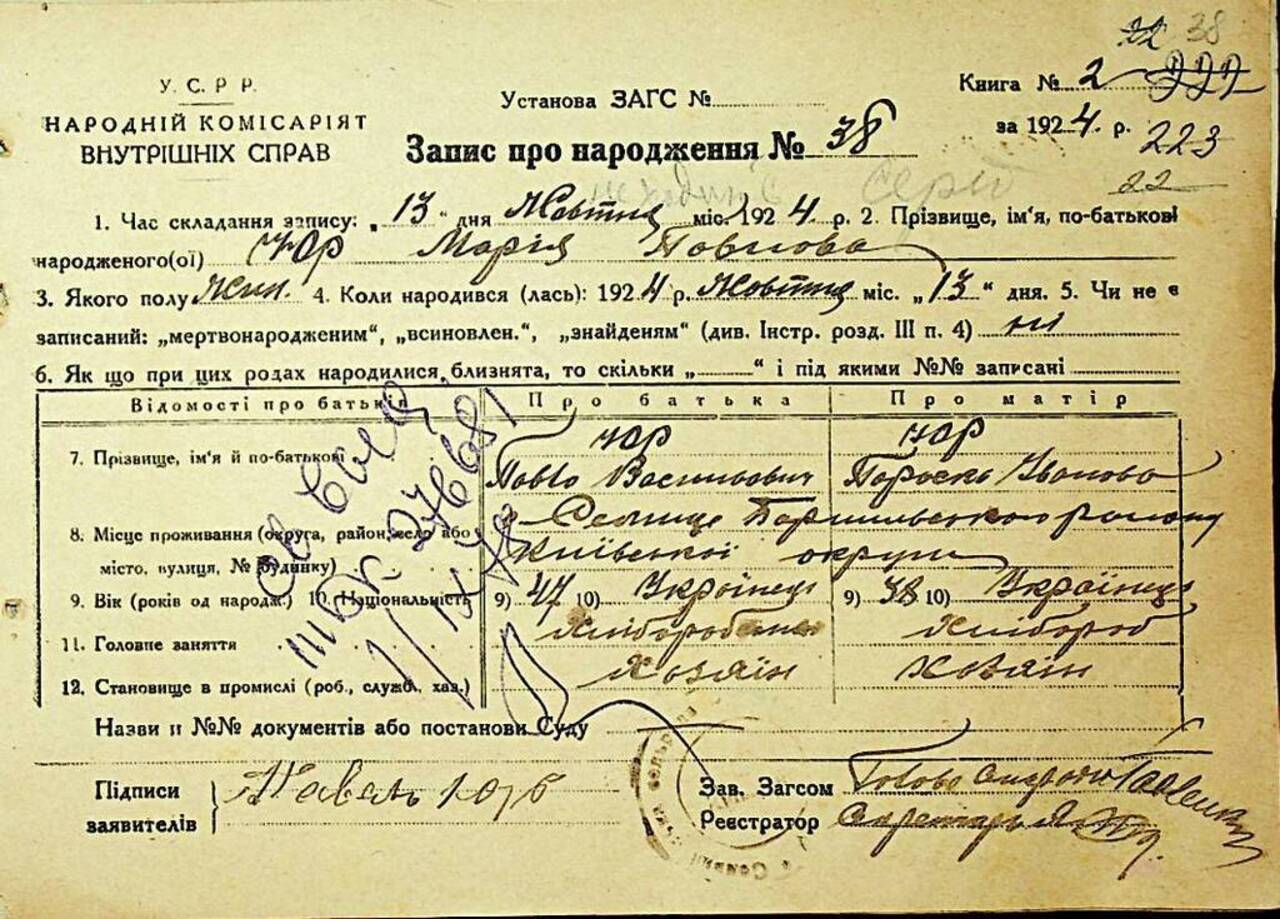 22 38
У. С. Р Р.
Установа ЗАГС №
Книга № 2 222
НАРОДНІЙ КОМІСАРІЯТ
за 1924 р. 223
ВНУТРІШНІХ СПРАВ
Запис про народження № 38
22
1. Час складання запису: „ 13 " дня Жовтня міс. 1924 р. 2. Прізвище, ім'я, по-батькові
народженого(ої) Юр Марія Павлова
3. Якого полу Жін. 4. Коли народився (лась): 1924 р. Жовтня міс. „ 13 " дня. 5. Чи не є
записаний: „мертвонародженим", „всиновлен.", „знайденям" (див. Інстр. розд. III п. 4) ні
6. Як що при цих родах народилися близнята, то скільки „ " і під якими №№ записані
Відомості про батьків Про батька Про матір
Юр Юр
7. Прізвище, ім'я й по-батькові Павло Васильович Параска Іванова
8. Місце проживання (округа, район, село або Селище Бориспільського району
місто, вулиця, № будинку) Київської округи
9. Вік (років од народж.) 10. Національність 9) 47 10) Українець 9) 38 10) Українець
11. Головне заняття Хлібороб
12. Становище в промислі (роб., служб., хаз.) Хозяїн Хозяїн
Назви и №№ документів або постанови Суду
Підписи Павель Юрь
заявителів
Зав. Загсом Голова
Реєстратор Секретарь